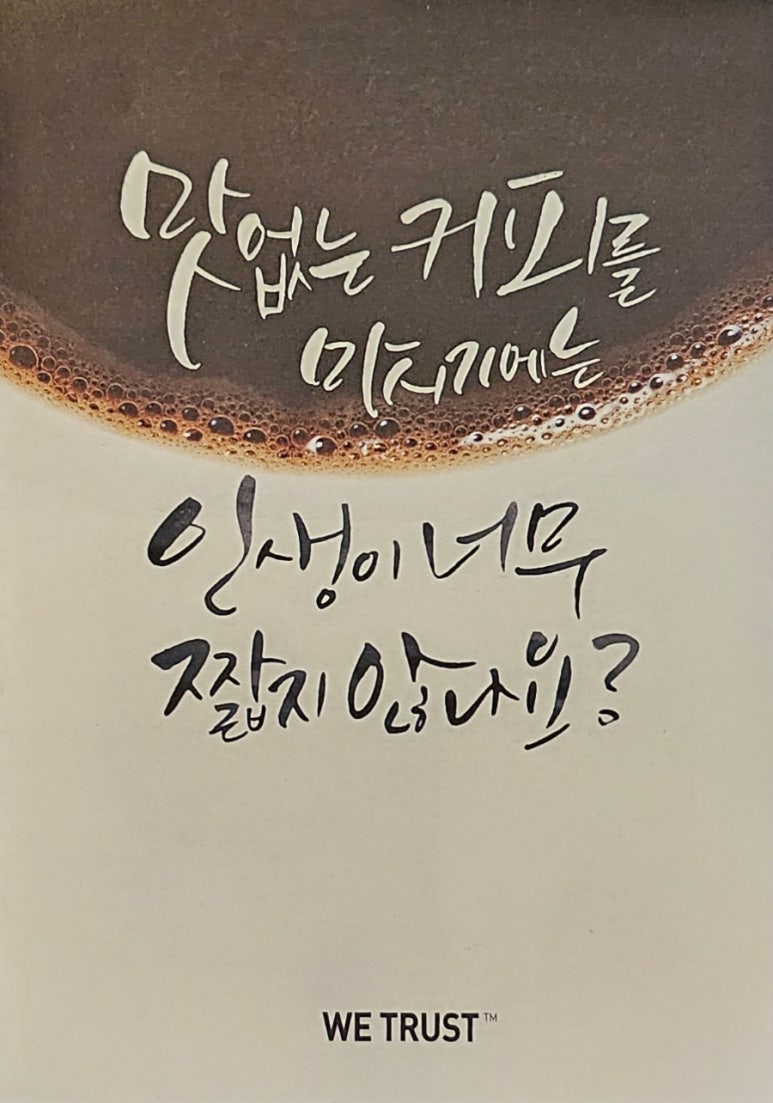 맛없는 커피를
마시기에는
인생이 너무
짧지 않나요?
WE TRUST™